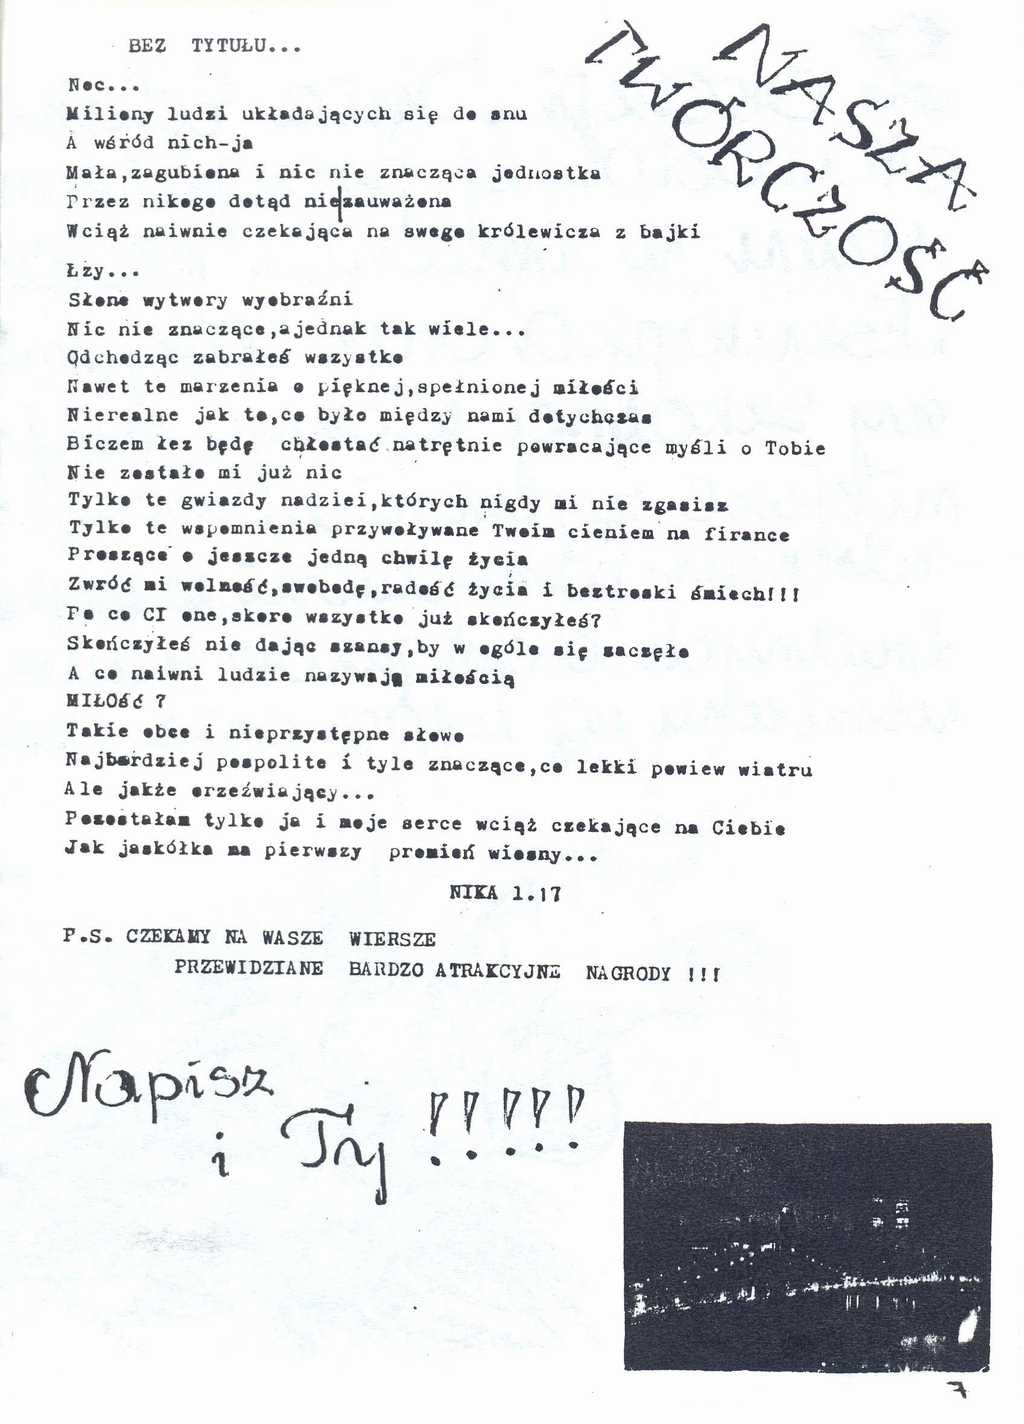 BEZ TYTUŁU...
NASZA
TWÓRCZOŚĆ
Noc...
Miliony ludzi układających się do snu
A wśród nich-ja
Mała,zagubiona i nic nie znacząca jednostka
Przez nikogo dotąd nie|zauważona
Wciąż naiwnie czekająca na swego królewicza z bajki
Łzy...
Słone wytwory wyobraźni
Nic nie znaczące,ajednak tak wiele...
Odchodząc zabrałeś wszystko
Nawet te marzenia o pięknej,spełnionej miłości
Nierealne jak to,co było między nami dotychczas
Biczem łez będę chłostać natrętnie powracające myśli o Tobie
Nie zostało mi już nic
Tylko te gwiazdy nadziei,których nigdy mi nie zgasisz
Tylko te wspomnienia przywoływane Twoim cieniem na firance
Proszące o jeszcze jedną chwilę życia
Zwróć mi wolność,swobodę,radość życia i beztroski śmiech!!!
Po co CI one,skoro wszystko już skończyłeś?
Skończyłeś nie dając szansy,by w ogóle się zaczęło
A co naiwni ludzie nazywają miłością
MIŁOŚĆ ?
Takie obce i nieprzystępne słowo
Najbardziej pospolite i tyle znaczące,co lekki powiew wiatru
Ale jakże orzeźwiający...
Pozostałam tylko ja i moje serce wciąż czekające na Ciebie
Jak jaskółka na pierwszy promień wiosny...
NIKA 1.17
P.S. CZEKAMY NA WASZE WIERSZE
PRZEWIDZIANE BARDZO ATRAKCYJNE NAGRODY !!!
Napisz
i Ty !!!!!
7